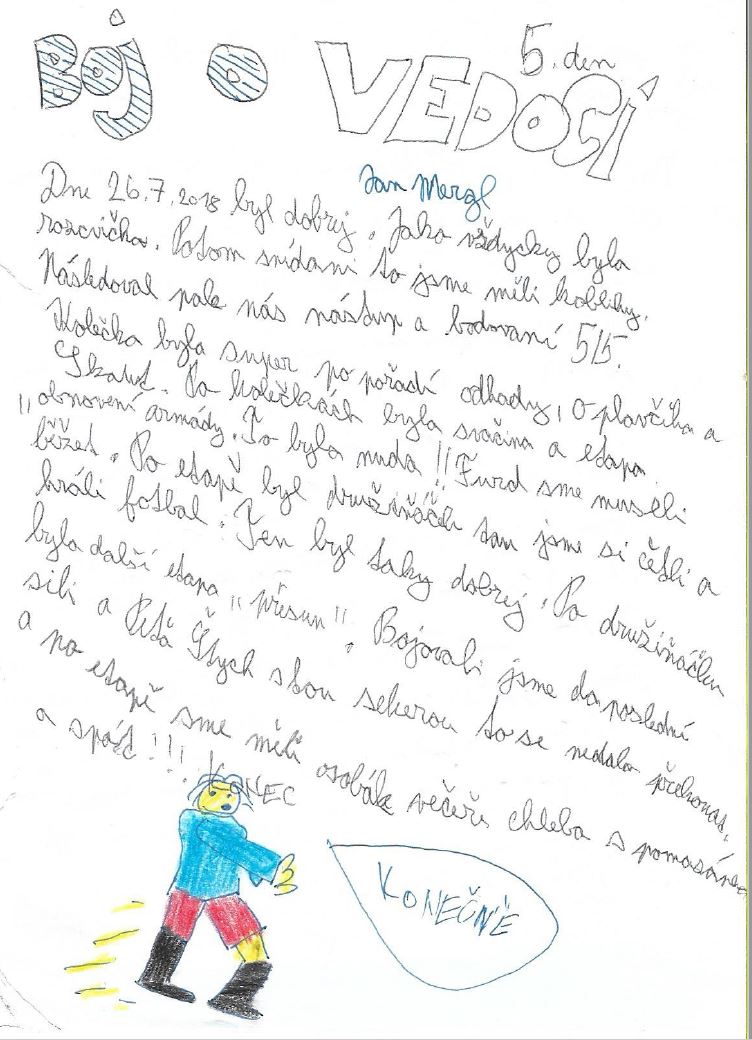 5. den
BOJ O VEDOCÍ
Jan Mergl
Dne 26.7.2018 byl dobrej. Jako vždycky byla
rozcvička. Potom snídaní to jsme měli koblihy.
Následoval pak nás nástup a bodovaní 5/5.
Kolečka byla super po pořadí odhady, o plavčíka a
Skaut. Po kolečkách byla svačina a etapa
"obnovení armády. To byla nuda!! Furd sme museli
běžet. Po etapě byl družiňáček tam jsme si četli a
hráli fotbal. Ten byl taky dobrej. Po družiňáčku
byla další etapa "přesun". Bojovali jsme do poslední
sili a Péťa Štych stou sekerou to se nedalo překonat.
a po etapě sme měli osobák večeře chleba s pomazánkou
a spát!!! KONEC
KONEČNĚ